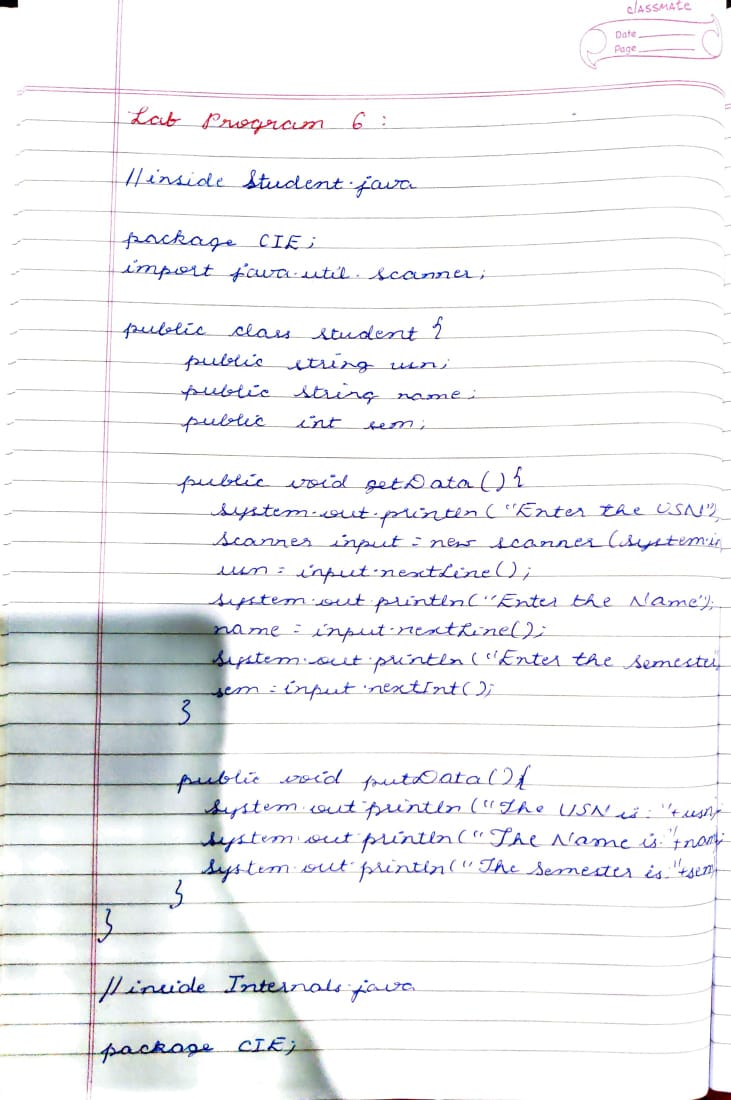 classmate
Date
Page
Lab Program 6 :
//inside Student.java
package CIE;
import java.util.scanner;
public class student {
public string usn;
public string name;
public int sem;
public void getData(){
system.out.println("Enter the USN");
scanner input = new scanner (system.in
usn = input.nextLine();
system.out.println("Enter the Name");
name = input.nextLine();
system.out.println("Enter the semester
sem = input.nextInt();
}
public void putData(){
system.out.println("The USN is: "+usn);
system.out.println("The Name is: "+nam
system.out.println("The semester is: "+sem
}
}
//inside Internals.java
package CIE;